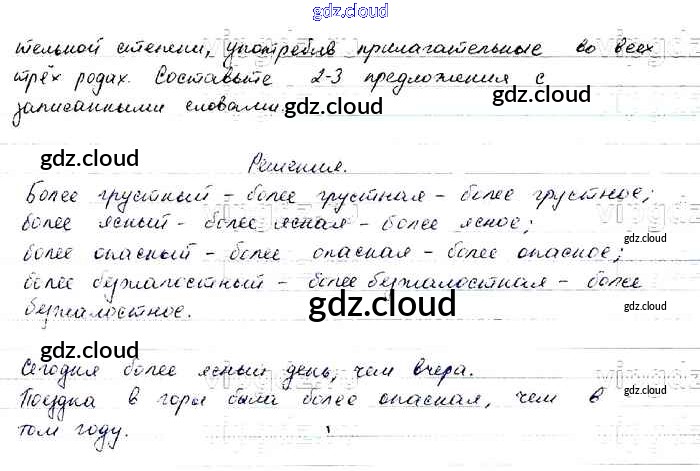 gdz.cloud
тельной степени, употребив прилагательные во всех
трёх родах. Составьте 2-3 предложения с
gdz.cloud
записанными словами.
gdz.cloud
gdz.cloud
Решения.
Более грустный - более грустная - более грустное;
более ясный - более ясная - более ясное;
gdz.cloud
более опасный - более опасная - более опасное;
более безжалостный - более безжалостная - более
безжалостное.
gdz.cloud
gdz.cloud
gdz.cloud
Сегодня более ясный день, чем вчера.
Поездка в горы была более опасная, чем в
gdz.cloud
том году.